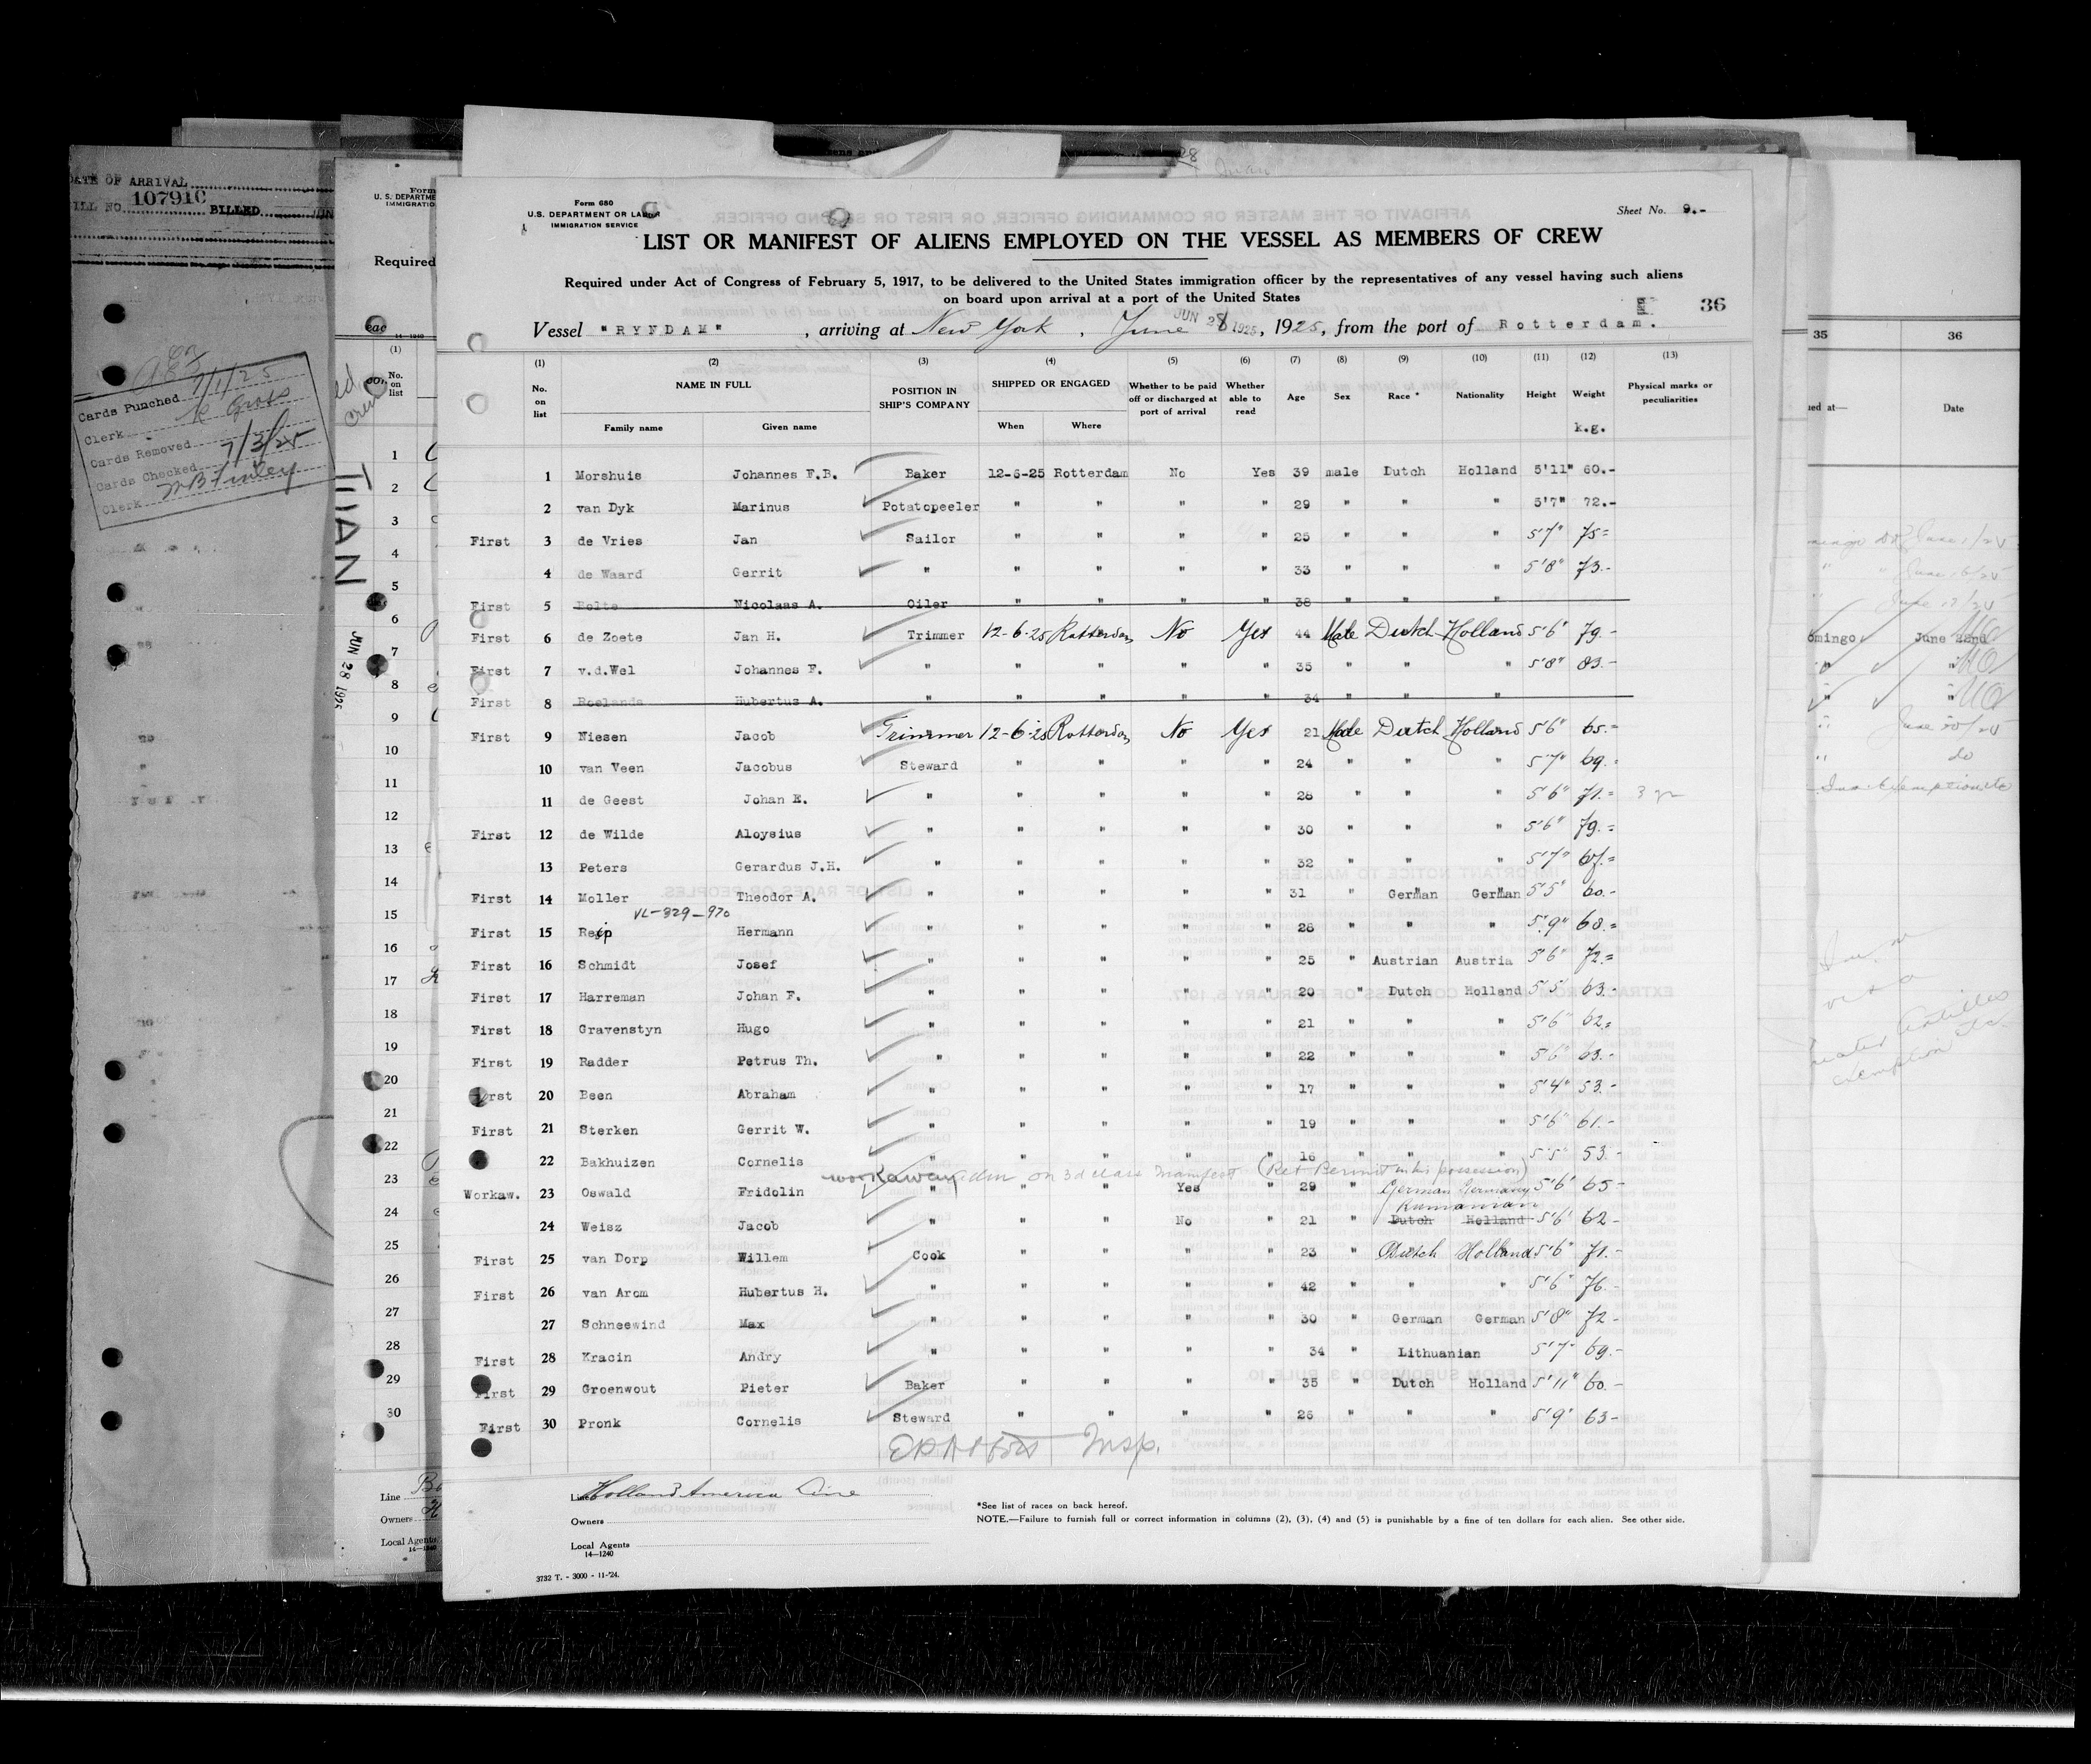 DATE OF ARRIVAL
BILL NO. 107910 BILLED
7/1/25
Cards Punched
Clerk K Gross
Cards Removed
Cards Checked 7/3/25
Clerk M B Finley
Form
U. S. DEPARTME
IMMIGRATIO
Required
JUN 28 1925
Form 680
U. S. DEPARTMENT OR LABOR
IMMIGRATION SERVICE
Sheet No. 9.-
LIST OR MANIFEST OF ALIENS EMPLOYED ON THE VESSEL AS MEMBERS OF CREW
Required under Act of Congress of February 5, 1917, to be delivered to the United States immigration officer by the representatives of any vessel having such aliens
on board upon arrival at a port of the United States
36
Vessel "RYNDAM", arriving at New York, June 28, 1925, from the port of Rotterdam.
JUN 28 1925
(1) (2) (3) (4) (5) (6) (7) (8) (9) (10) (11) (12) (13)
No. on list NAME IN FULL POSITION IN SHIP'S COMPANY SHIPPED OR ENGAGED Whether to be paid off or discharged at port of arrival Whether able to read Age Sex Race * Nationality Height Weight Physical marks or peculiarities
Family name Given name When Where k.g.
1 Morshuis Johannes F.B. Baker 12-6-25 Rotterdam No Yes 39 male Dutch Holland 5'11" 60.-
2 van Dyk Marinus Potatopeeler " " " " 29 " " " 5'7" 72.-
First 3 de Vries Jan Sailor " " " " 25 " " " 5'7" 75=
4 de Waard Gerrit " " " " " 33 " " " 5'8" 73.-
First 5 Bolte Nicolaas A. Oiler " " " " 38 " " "
First 6 de Zoete Jan H. Trimmer 12-6-25 Rotterdam No Yes 44 Male Dutch Holland 5'6" 79.-
First 7 v.d.Wel Johannes F. " " " " " 35 " " " 5'8" 83.-
First 8 Roelands Hubertus A. " " " " " 34 " " "
First 9 Niesen Jacob Trimmer 12-6-25 Rotterdam No Yes 21 Male Dutch Holland 5'6" 65.-
10 van Veen Jacobus Steward " " " " 24 " " " 5'7" 69.
11 de Geest Johan E. " " " " " 26 " " " 5'6" 71.=
First 12 de Wilde Aloysius " " " " " 30 " " " 5'6" 79.=
13 Peters Gerardus J.H. " " " " " 32 " " " 5'7" 67.=
First 14 Moller Theodor A. " " " " " 31 " German German 5'5" 60.-
VL-329-970
First 15 Reip Hermann " " " " " 28 " " " 5'9" 68.=
First 16 Schmidt Josef " " " " " 25 " Austrian Austria 5'6" 72.=
First 17 Harreman Johan F. " " " " " 20 " Dutch Holland 5'5" 63.-
First 18 Gravenstyn Hugo " " " " " 21 " " " 5'6" 62.=
First 19 Radder Petrus Th. " " " " " 22 " " " 5'6" 63.-
First 20 Been Abraham " " " " " 17 " " " 5'4" 53.-
First 21 Sterken Gerrit W. " " " " " 19 " " " 5'6" 61.-
22 Bakhuizen Cornelis " " " " " 16 " " " 5'5" 53.-
workaway adm on 3d class manifest (Ret Permit in his possession)
Workaw. 23 Oswald Fridolin " " " Yes " 29 " German Germany 5'6" 65-
Rumanian
24 Weisz Jacob " " " No " 21 " Dutch Holland 5'6" 62-
First 25 van Dorp Willem Cook " " " " 23 " Dutch Holland 5'6" 71.-
First 26 van Arom Hubertus H. " " " " " 42 " " " 5'6" 76.-
27 Schneewind Max " " " " " 30 " German German 5'8" 72-
First 28 Kracin Andry " " " " " 34 " Lithuanian 5'7" 69.-
First 29 Groenwout Pieter Baker " " " " 35 " Dutch Holland 5'11" 60.-
First 30 Pronk Cornelis Steward " " " " 26 " " " 5'9" 63-
Insp.
Line Holland America Line
Owners
Local Agents
14—1240
*See list of races on back hereof.
NOTE.—Failure to furnish full or correct information in columns (2), (3), (4) and (5) is punishable by a fine of ten dollars for each alien. See other side.
3732 T. - 3000 - 11-'24.
35 36
ued at— Date
omingo June 22nd